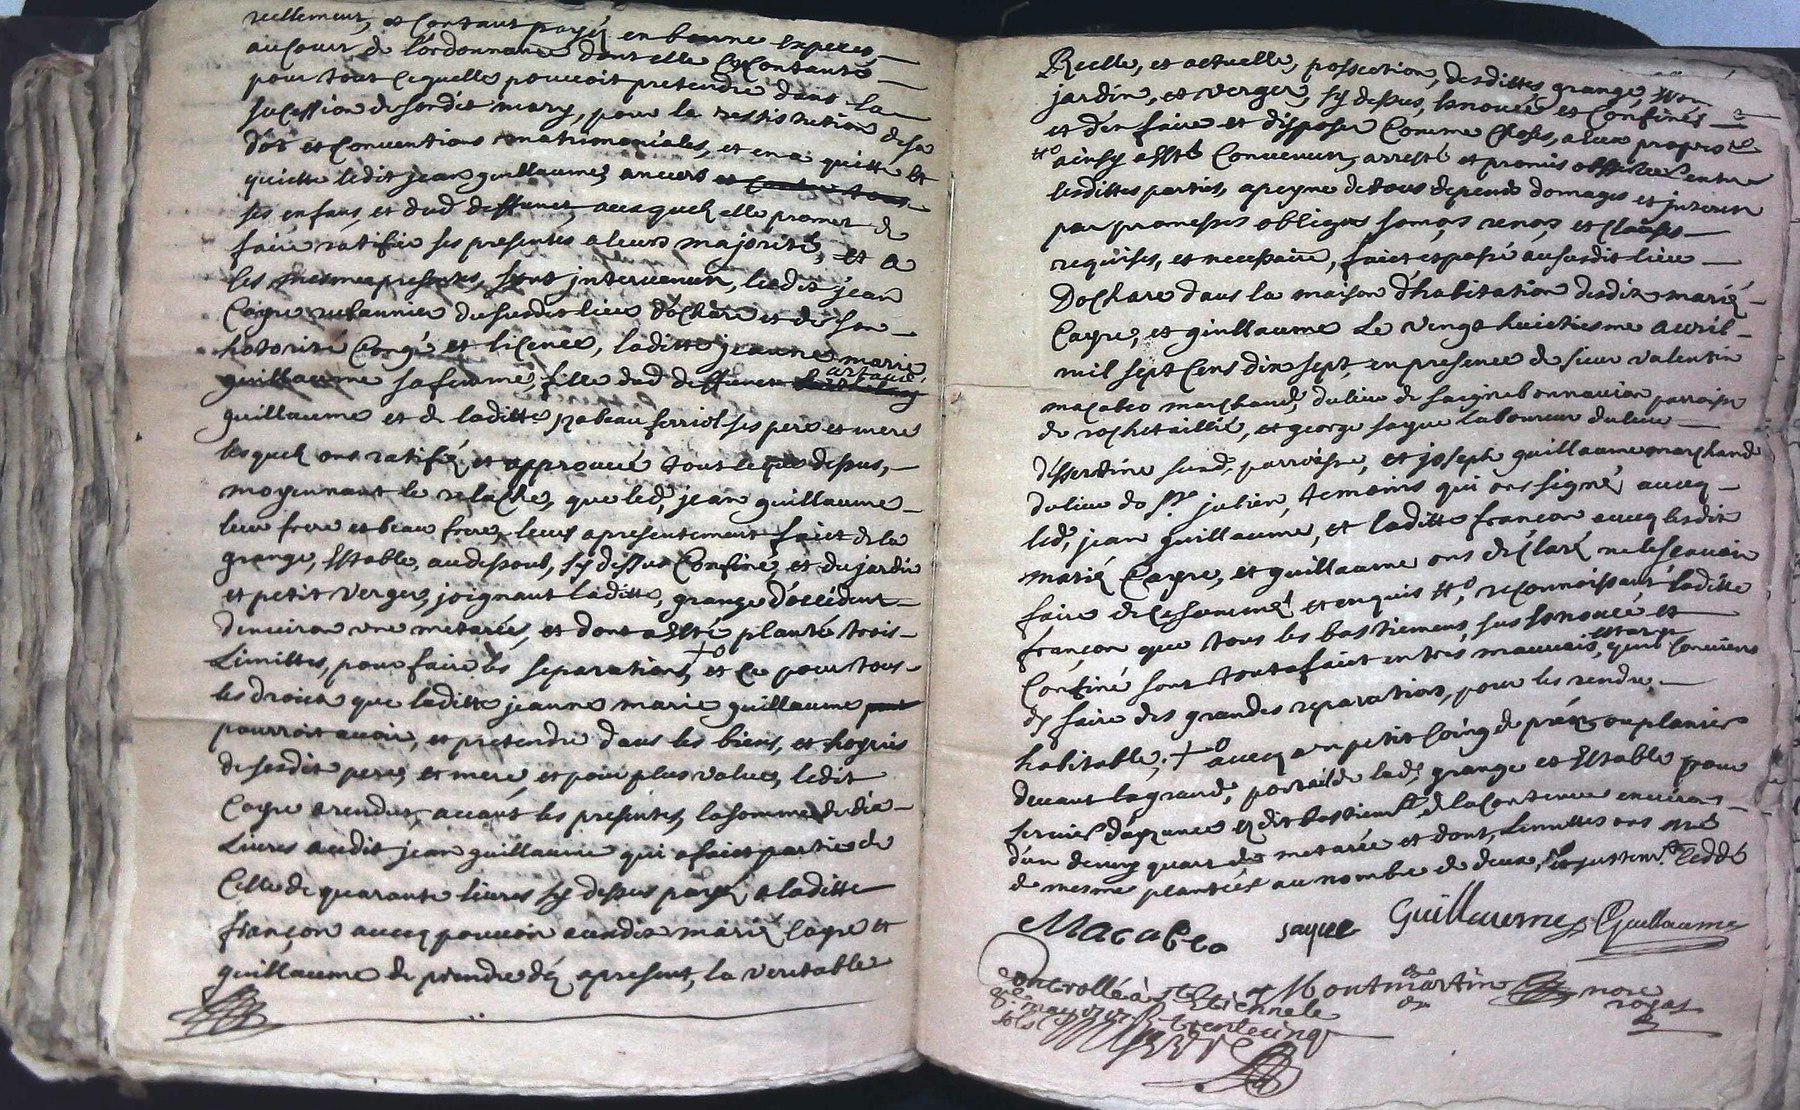 reellement, et Contant payé en bonne especes,
au Cours de l'ordonnance dont elle C'est Contante
pour tout Ce quelle pouvoit pretendre dans la
sucession de sondit mary, pour la restitution de sa
dot et Conventions matrimoniales, et en a quitté et
quitte ledit jean guillaume, envers
ses enfans, et dud deffunct ausquels elle promet de
faire ratifie ses presentes a leurs majorité, et a
les mesme presentes, sont intervenus, ledit jean
Cayre rubannier du susdit lieu dochare et de son
hotorité Congé et licence, laditte jeanne marie
guillaume sa femme, fille dud deffunct artaud
guillaume et de laditte ysabeau ferriol ses pere et mere
lesquels ont ratifié et approuvé tout le que dessus,
moyennant le relache, que led, jean guillaume
leur frere et beau frere, leurs a presentement faict de la
grange, Estable, au dessoub, sy dessus Confiné, et du jardin
et petit verger, joignant laditte, grange d'occident
d'environ une meterée, et dont a Esté planté trois
Limittes, pour faire les separations, et Ce pour tous
les droicts que laditte jeanne marie guillaume
pourroit avoir, et pretendre dans les biens, et hoyris
de sesdit pere, et mere, et pour plus values, ledit
Cayre a rendus, avant les presentes, la somme de dix
Livres audit jean guillaume qui a faict partie de
Celle de quarante livres sy dessus payé, a laditte
françon avecq pouvoir ausdits mariés Cayre et
guillaume de prendre dés apresent, la veritable
Reelle, et actuelle, possection, desdittes grange,
jardin, et verger, sy dessus, Enoncés et Confinés
et d'en faire et disposer Comme Choses, a eux propres
ainsy a esté Convenus, arresté et promis observer entre
lesdittes parties, a peyne de tous depends domages et interets
par promesses obligeant somons renons et Clauses
requises, et necessaire, faict et passé au susdit lieu
Dochare dans la maison d'habitation desdits mariés
Cayre, et guillaume Le vingt huictiesme avril
mil sept Cens dix sept, en presence de sieur valentin
macabeo marchand, du lieu de parroisse
de rochetaillié, et george sayue Laboureur du lieu
susd, parroisse, et joseph guillaume marchand
du lieu de st julien, temoins qui ont signé avecq
led, jean guillaume, et laditte françon avecq lesdits
mariés Cayre, et guillaume ont déClaré ne le sçavoir
faire de Ce sommés et enquis reconnoissant laditte
françon que tous les bastiemens, sus Enoncé et
Confiné sont toutafaict en tres mauvais, estat qu'il Convient
dy faire des grandes reparations, pour les rendre
habitable, + avecq un petit Coing de pré ou planier
devant la grand, portail de lad, grange et Estable pour
servir daysance esdit bastiemt, de la Contenue environ
d'un demy quart de metarée et dont, Limittes ont esté
de mesme plantées au nombre de deux,
Macabeo sayue Guillaume JGuillaume
Montmartin nore royal
Controllé a st Estienne le
may 1717
trente cinq